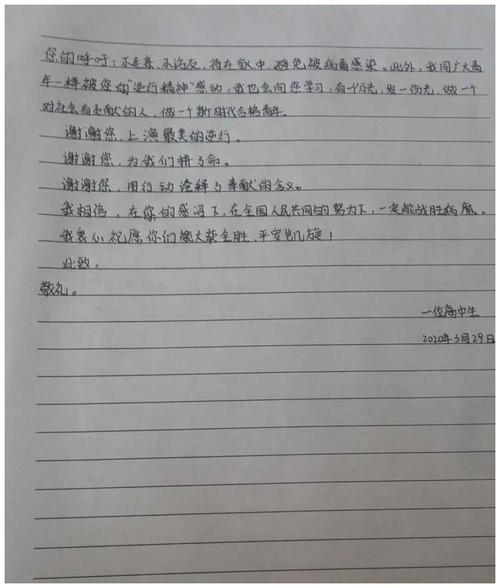 您的呼吁：不走亲，不访友，待在家中，避免被病毒感染。此外，我同广大青
年一样被您的“逆行精神”感动，我也会向您学习，有一分光，发一份光，做一个
对社会有贡献的人，做一个新时代合格青年。
谢谢您，上演最美的逆行。
谢谢您，为我们拼了命。
谢谢您，用行动诠释了奉献的含义。
我相信，在你的感召下，在全国人民共同的努力下，一定能战胜病魔。
我衷心祝愿你们能大获全胜，平安凯旋！
此致，
敬礼。
一位高中生
2020年3月29日